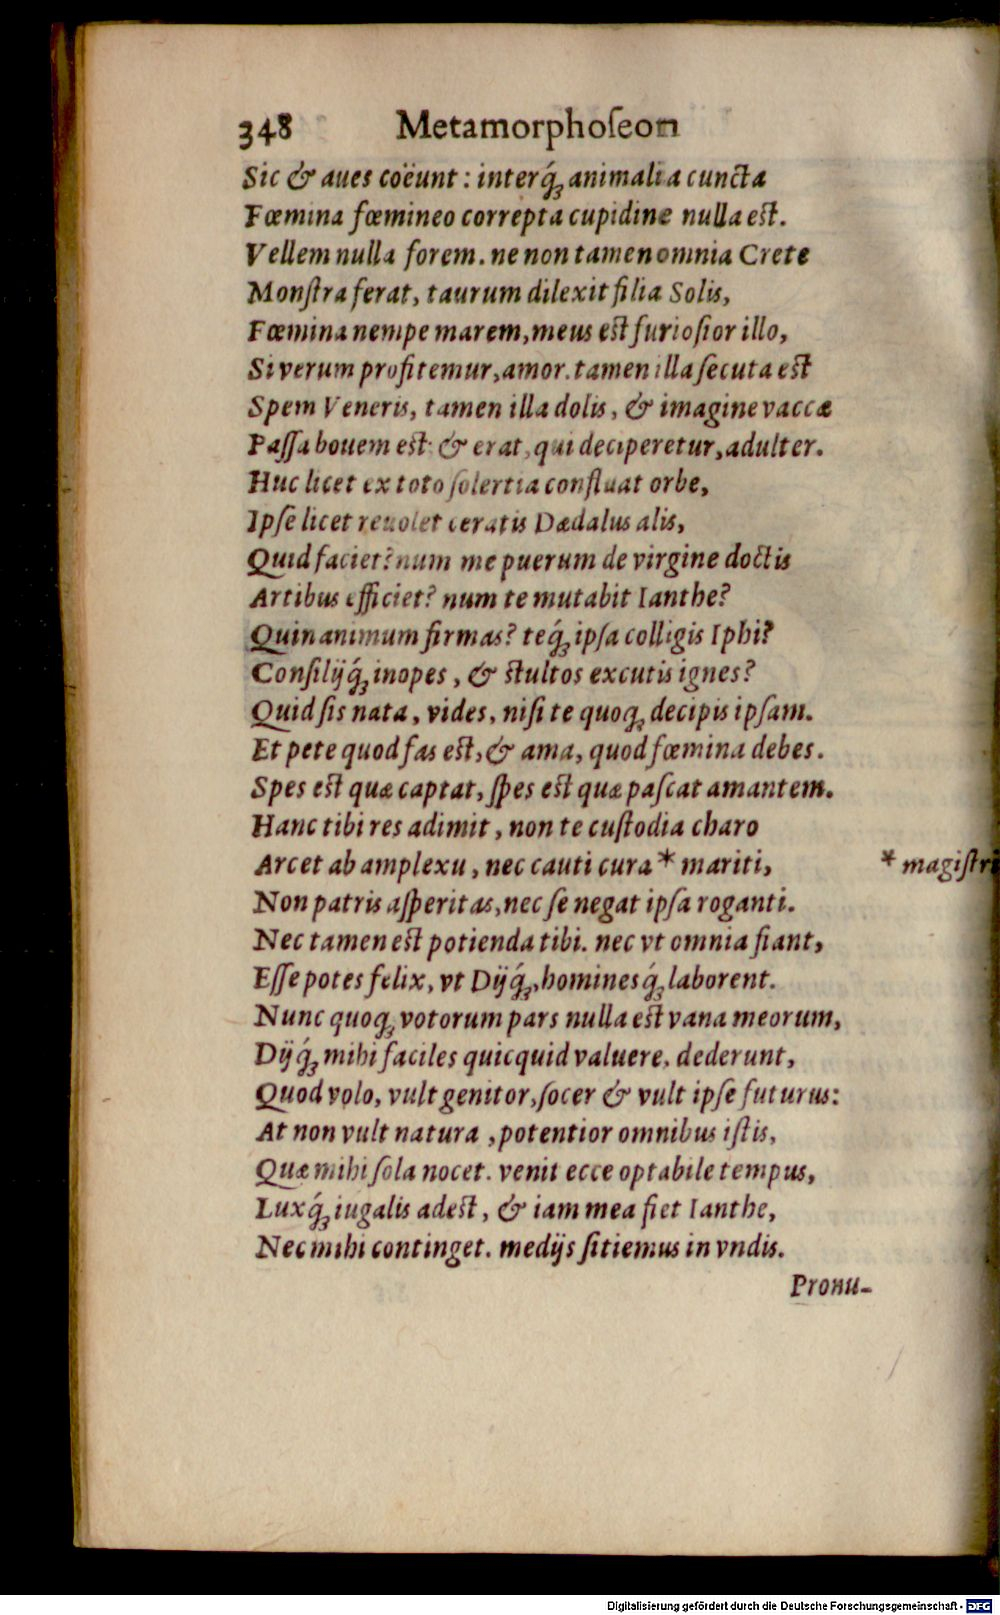 348 Metamorphoſeon
Sic & aues coëunt : interq́; animalia cuncta
Fœmina fœmineo correpta cupidine nulla est.
Vellem nulla forem. ne non tamen omnia Crete
Monſtra ferat, taurum dilexit filia Solis,
Fœmina nempe marem, meus est furioſior illo,
Si verum profitemur, amor. tamen illa ſecuta est
Spem Veneris, tamen illa dolis, & imagine vaccæ
Paſſa bouem est: & erat, qui deciperetur, adulter.
Huc licet ex toto ſolertia confluat orbe,
Ipſe licet reuolet ceratis Dædalus alis,
Quid faciet? num me puerum de virgine doctis
Artibus efficiet? num te mutabit Ianthe?
Quin animum firmas? teq́; ipſa colligis Iphi?
Conſilijq́; inopes, & stultos excutis ignes?
Quid ſis nata, vides, niſi te quoq; decipis ipſam.
Et pete quod fas est, & ama, quod fœmina debes.
Spes est quæ captat, ſpes est quæ paſcat amantem.
Hanc tibi res adimit, non te cuſtodia charo
Arcet ab amplexu, nec cauti cura * mariti, * magiſtri
Non patris aſperitas, nec ſe negat ipſa roganti.
Nec tamen est potienda tibi. nec vt omnia fiant,
Eſſe potes felix, vt Dijq́;, hominesq́; laborent.
Nunc quoq; votorum pars nulla est vana meorum,
Dijq́; mihi faciles quicquid valuere, dederunt,
Quod volo, vult genitor, ſocer & vult ipſe futurus:
At non vult natura, potentior omnibus iſtis,
Quæ mihi ſola nocet. venit ecce optabile tempus,
Luxq́; iugalis adest, & iam mea fiet Ianthe,
Nec mihi continget. medijs ſitiemus in vndis.
Pronu-
Digitalisierung gefördert durch die Deutsche Forschungsgemeinschaft - DFG